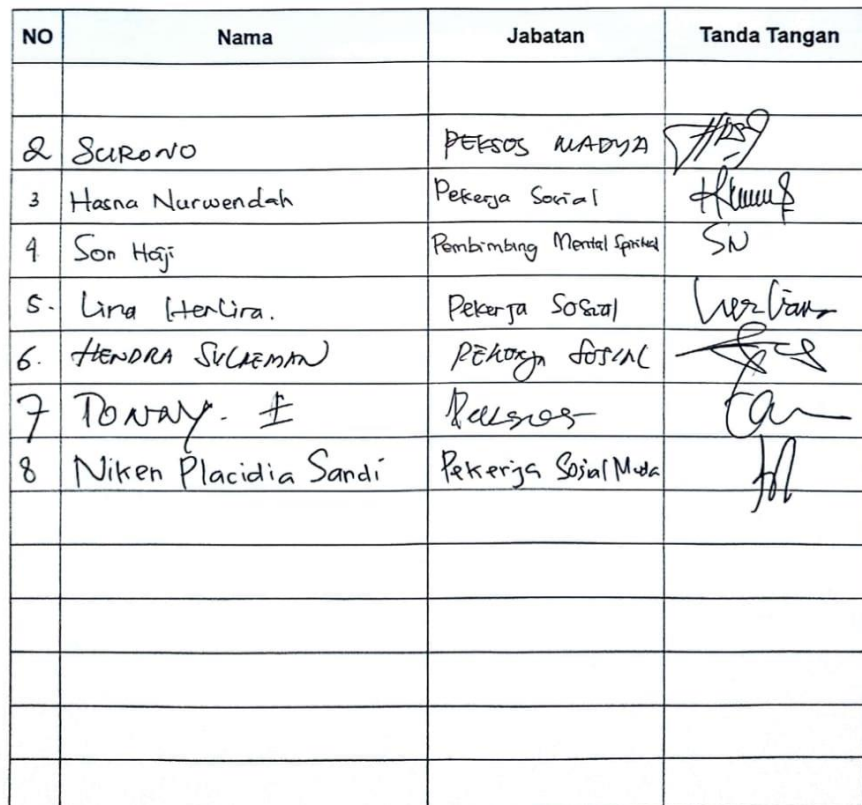 NO Nama Jabatan Tanda Tangan
2 SURONO PEKSOS MADYA
3 Hasna Nurwendah Pekerja Sosial
4 Son Haji Pembimbing Mental Spiritual SN
5. Lina Herlina. Pekerja Sosial
6. HENDRA SULAEMAN PEKERJA SOSIAL
7 TONNY. I Peksos
8 Niken Placidia Sandi Pekerja Sosial Muda